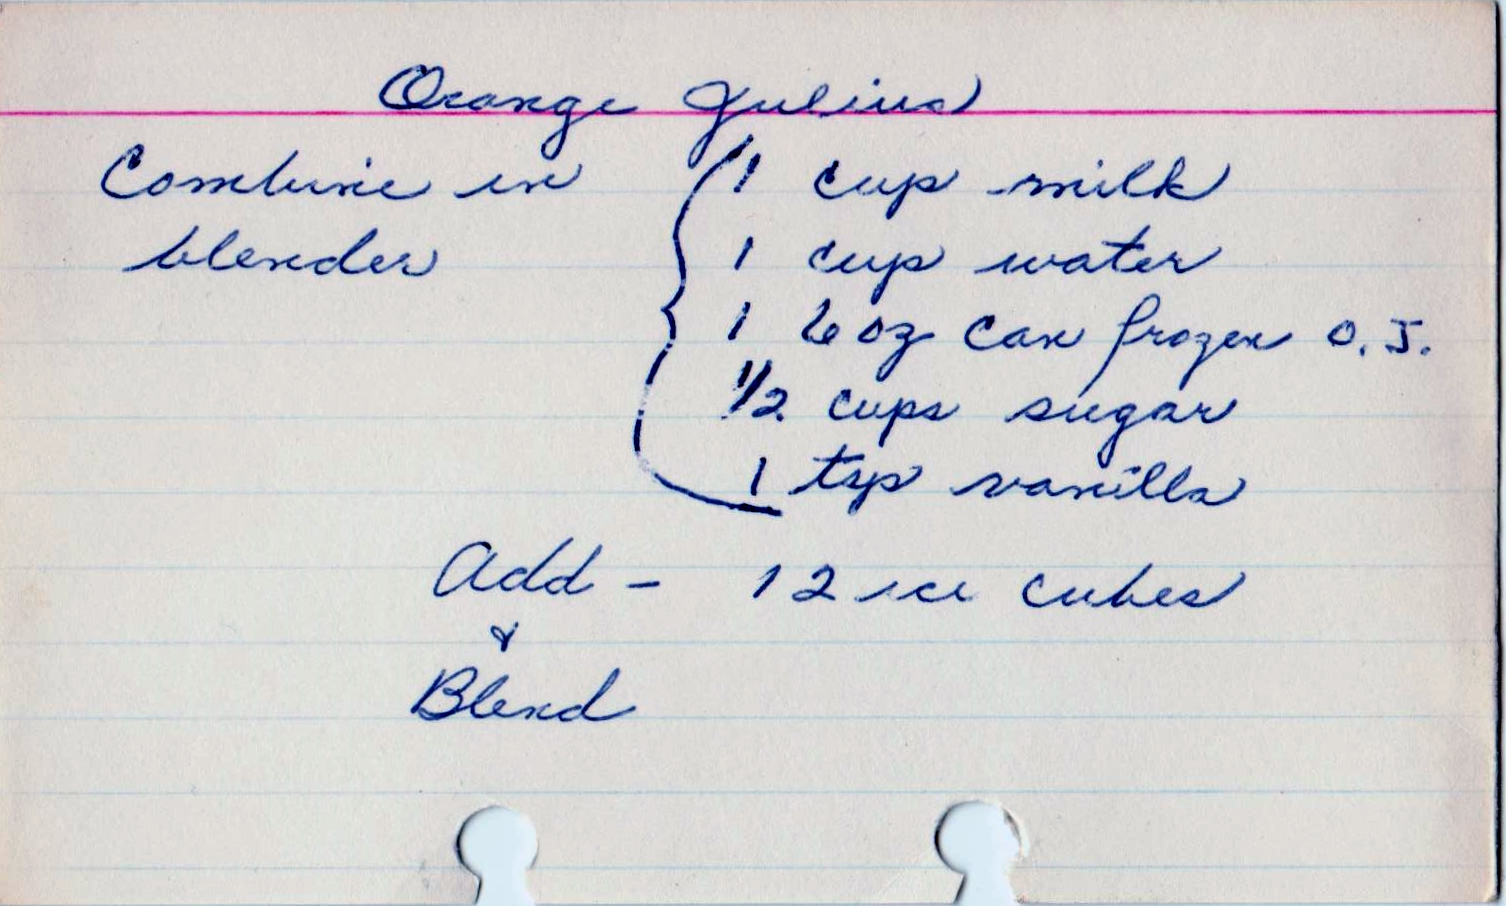 Orange Julius
Combine in
blender
1 cup milk
1 cup water
1 6 oz can frozen O.J.
1/2 cups sugar
1 tsp vanilla
Add - 12 ice cubes
&
Blend